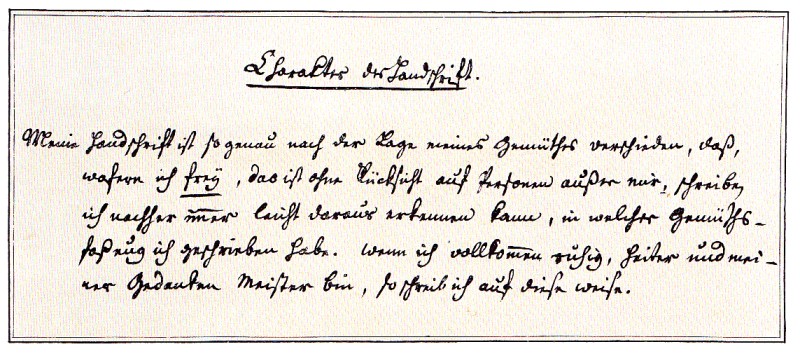 Charakter der Handschrift.
Meine Handschrift ist so genau nach der Lage meines Gemüthes verschieden, daß,
wofern ich frey, das ist ohne Rücksicht auf Personen außer mir, schreibe,
ich nachher im̅er leicht daraus erkennen kann, in welcher Gemüths-
faßung ich geschrieben habe. Wenn ich vollkom̅en ruhig, heiter und mei-
ner Gedanken Meister bin, so schreib ich auf diese weise.